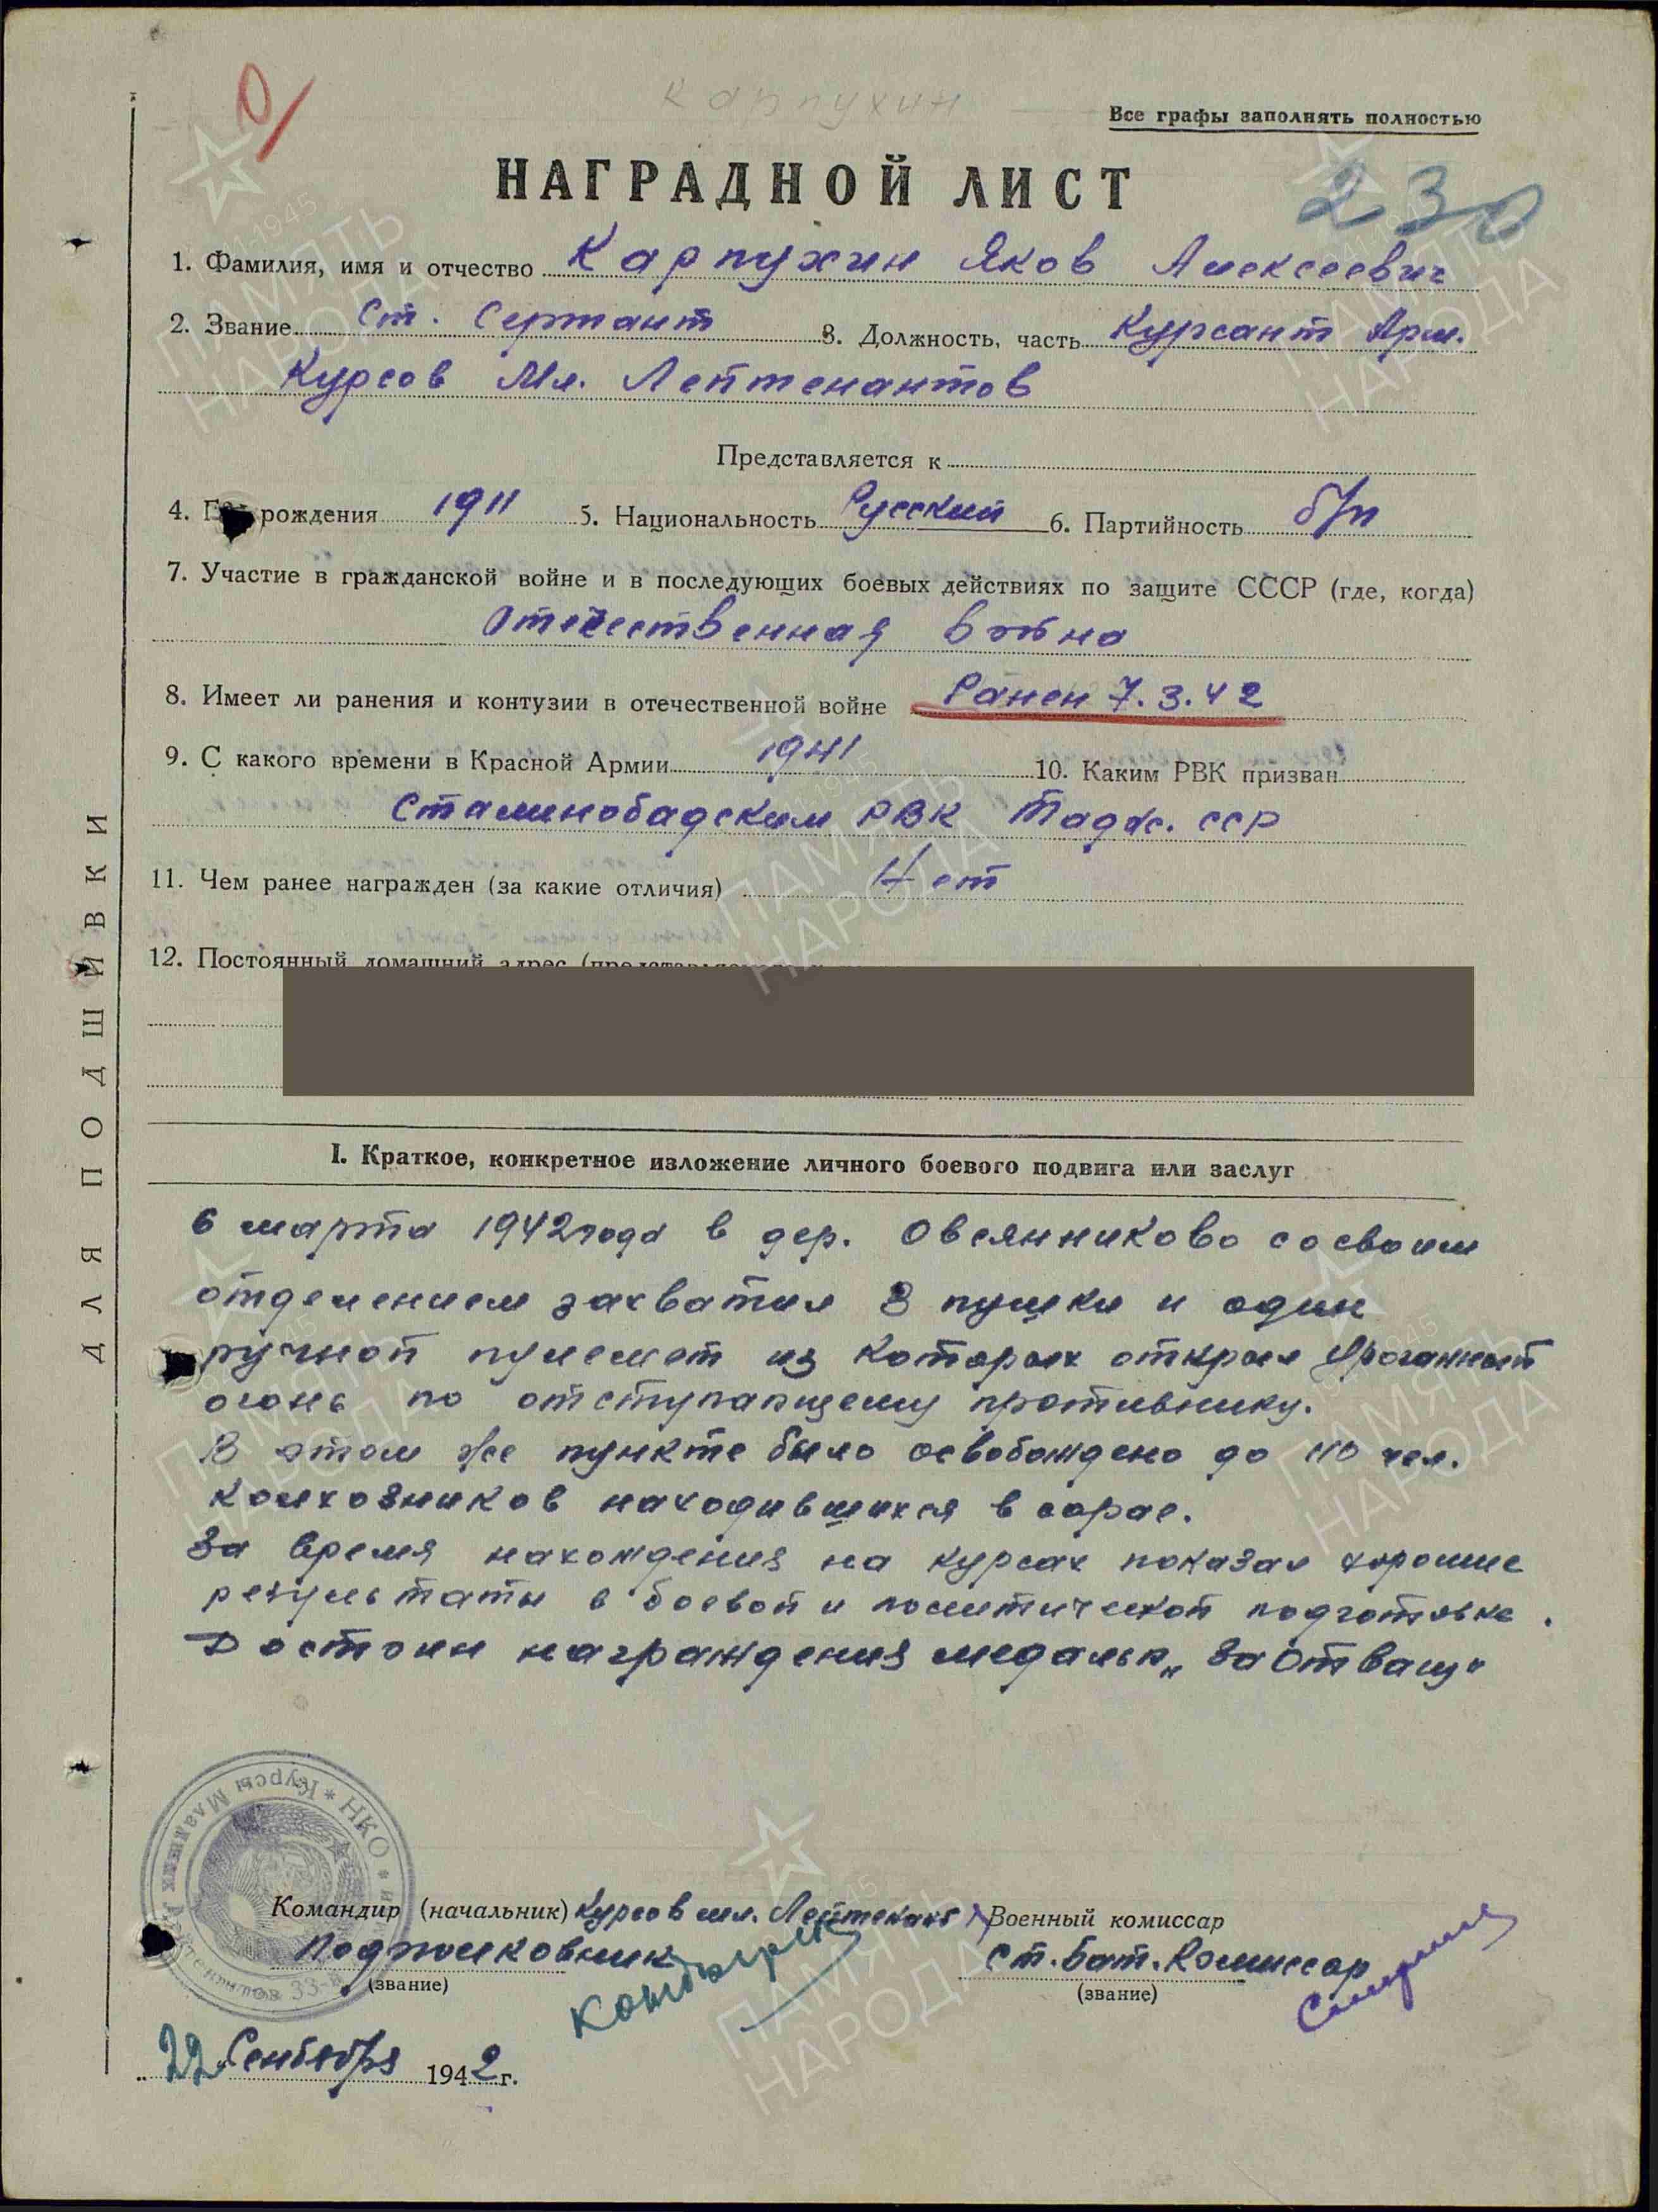 Карпухин
Все графы заполнять полностью
НАГРАДНОЙ ЛИСТ
230
1. Фамилия, имя и отчество Карпухин Яков Алексеевич
2. Звание Ст. Сержант 3. Должность, часть Курсант Арм.
Курсов Мл. Лейтенантов
Представляется к
4. Год рождения 1911 5. Национальность Русский 6. Партийность б/п
7. Участие в гражданской войне и в последующих боевых действиях по защите СССР (где, когда)
Отечественная война
8. Имеет ли ранения и контузии в отечественной войне Ранен 7.3.42
9. С какого времени в Красной Армии 1941 10. Каким РВК призван
Сталинобадским РВК Тадж. ССР
11. Чем ранее награжден (за какие отличия) Нет
12. Постоянный домашний адрес
ДЛЯ ПОДШИВКИ
I. Краткое, конкретное изложение личного боевого подвига или заслуг
6 марта 1942 года в дер. Овсянниково со своим
отделением захватил 3 пушки и один
ручной пулемет из которых открыл
огонь по отступающему противнику.
В этом же пункте было освобождено до 40 чел.
колхозников находившихся в сарае.
За время нахождения на курсах показал хорошие
результаты в боевой и политической подготовке.
Достоин награждения медалью „За Отвагу"
НКО * Курсы Младших Лейтенантов 33-й
Командир (начальник) Курсов мл. Лейтенант Военный комиссар
Подполковник Ст. Бат. Комиссар
(звание) (звание)
„22" Сентября 1942 г.
ПАМЯТЬ НАРОДА
1941-1945